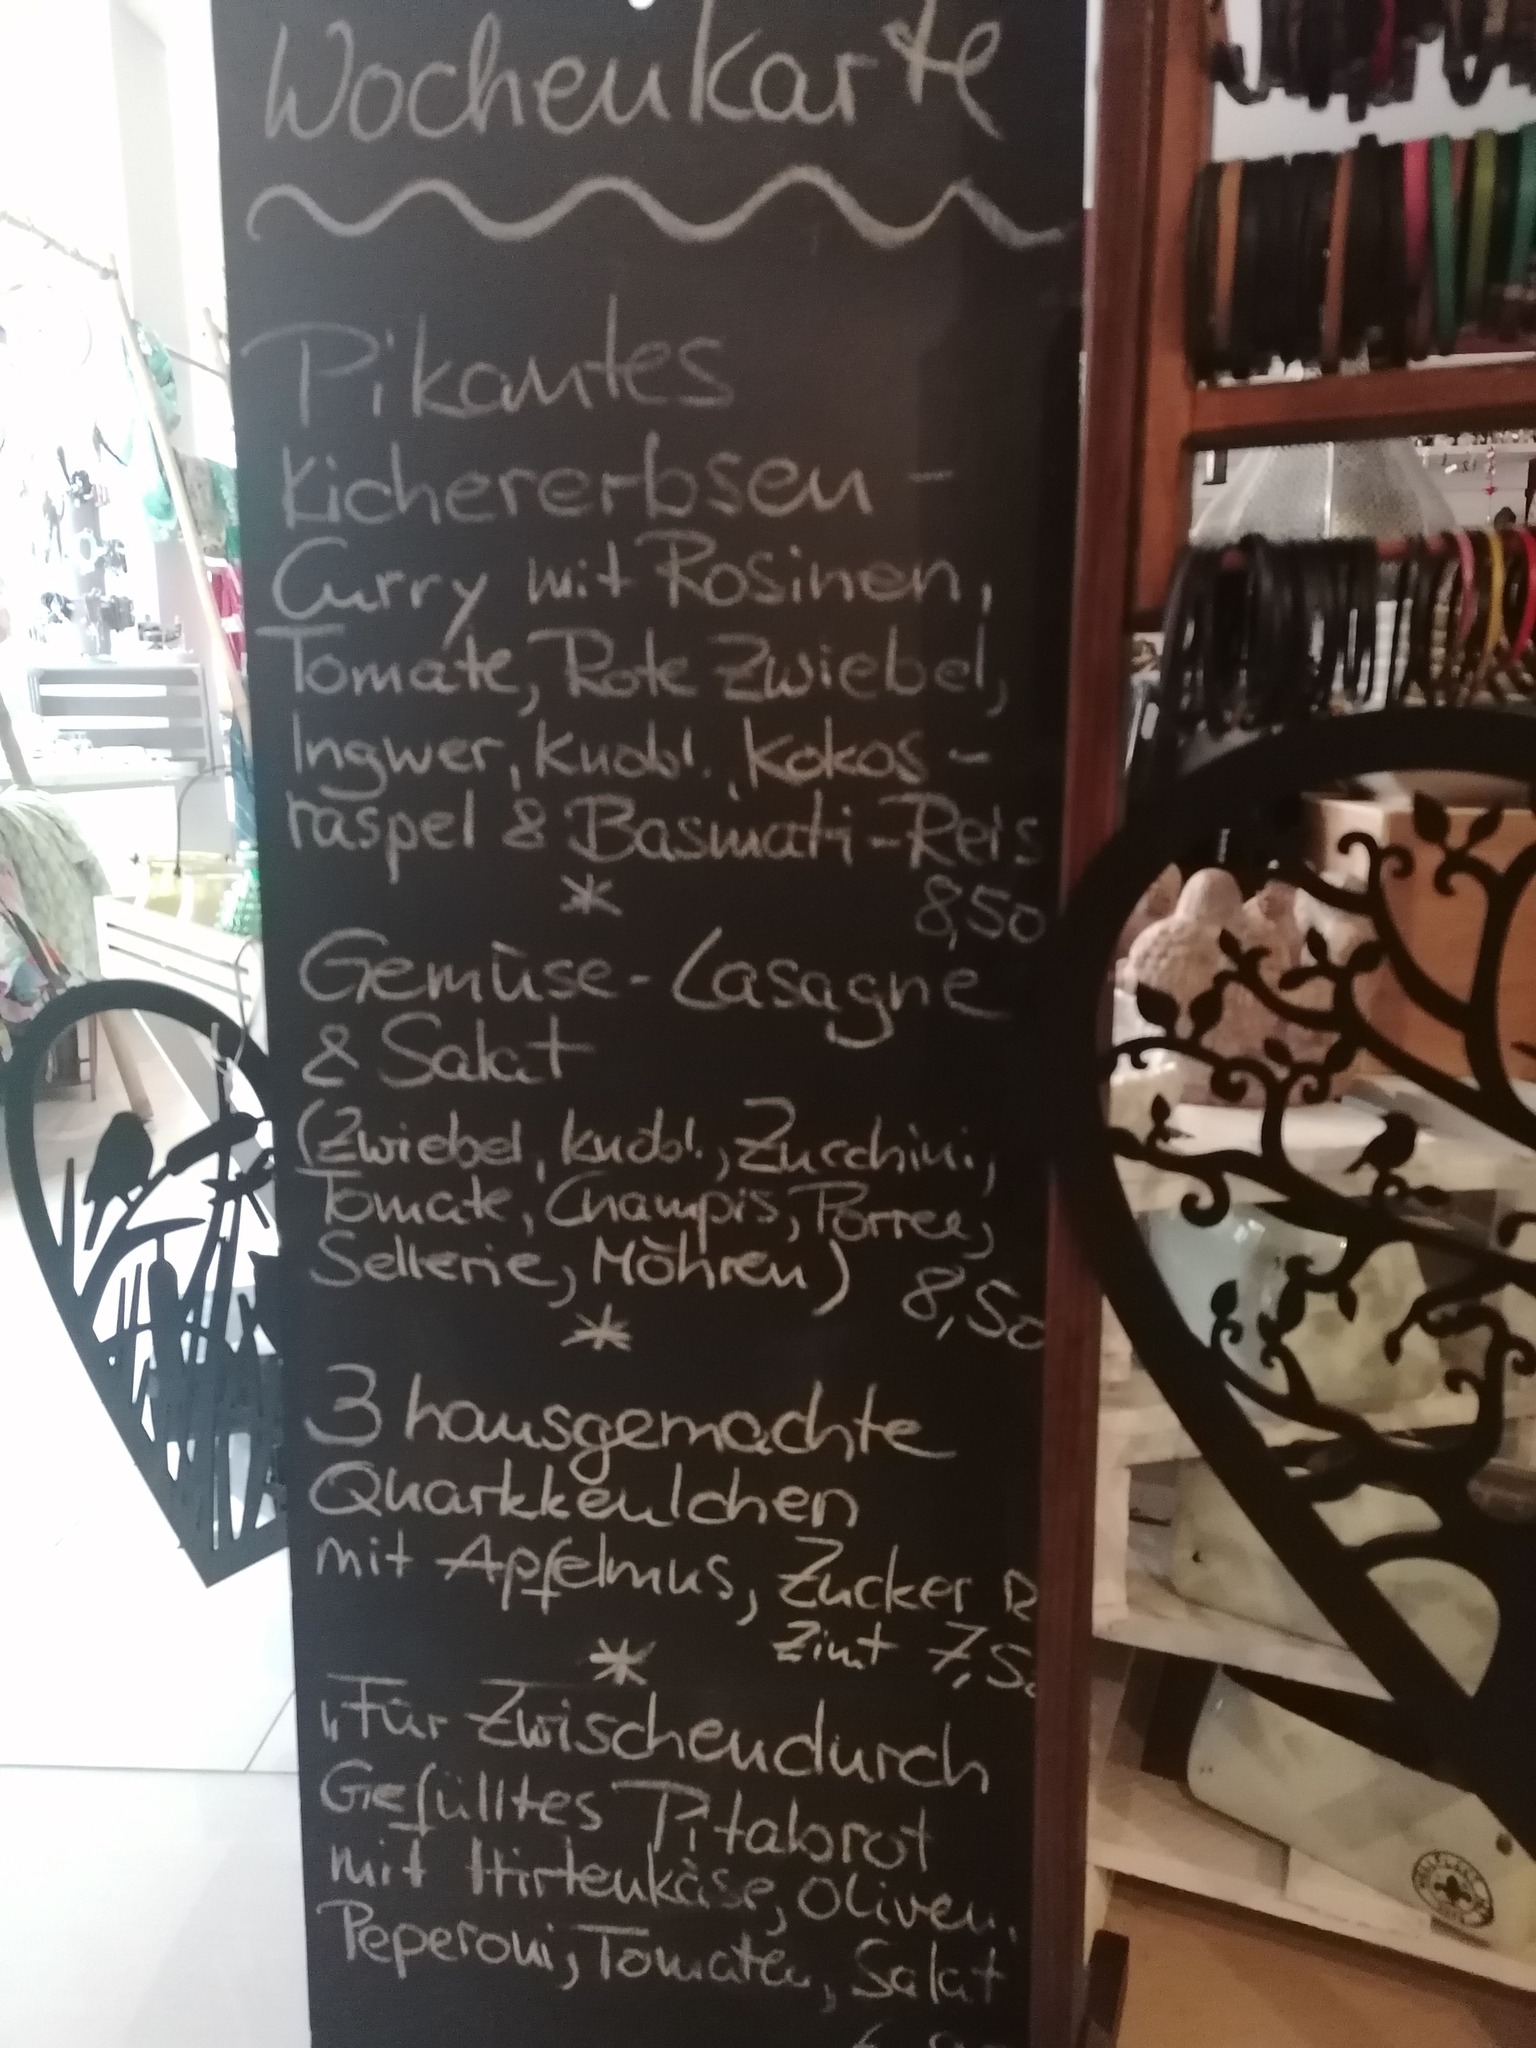 Wochenkarte
Pikantes
Kichererbsen-
Curry mit Rosinen,
Tomate, Rote Zwiebel,
Ingwer, Knobl., Kokos-
raspel & Basmati-Reis
* 8,50
Gemüse-Lasagne
& Salat
(Zwiebel, Knobl., Zucchini,
Tomate, Champis, Porree,
Sellerie, Möhren) 8,50
*
3 hausgemachte
Quarkkeulchen
mit Apfelmus, Zucker &
Zimt 7,50
*
"Für Zwischendurch
Gefülltes Pitabrot
mit Hirtenkäse, Oliven,
Peperoni, Tomaten, Salat